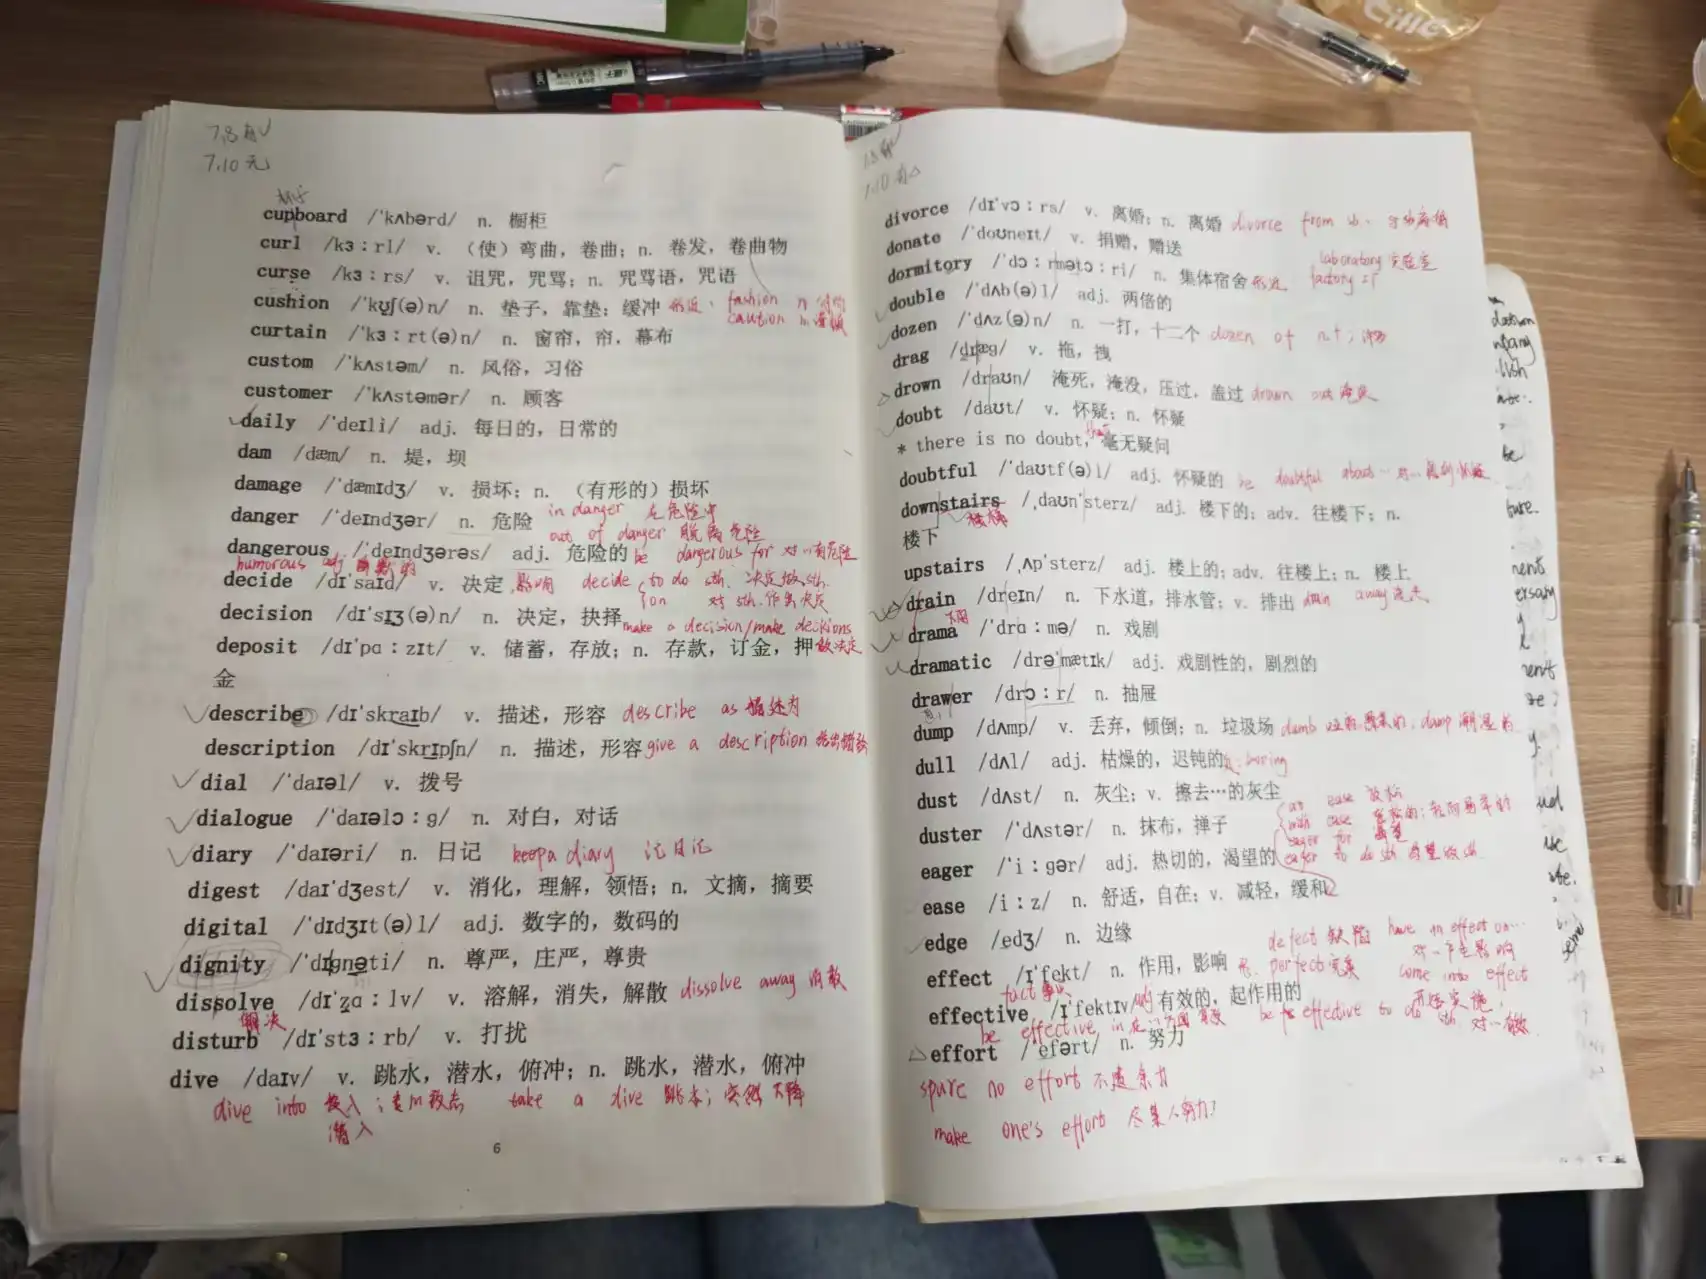 7.8
7.10
cupboard /ˈkʌbərd/ n. 橱柜
curl /kɜːrl/ v. （使）弯曲，卷曲；n. 卷发，卷曲物
curse /kɜːrs/ v. 诅咒，咒骂；n. 咒骂语，咒语
cushion /ˈkʊʃ(ə)n/ n. 垫子，靠垫；缓冲 形近： fashion n 时尚
caution n.
curtain /ˈkɜːrt(ə)n/ n. 窗帘，帘，幕布
custom /ˈkʌstəm/ n. 风俗，习俗
customer /ˈkʌstəmər/ n. 顾客
daily /ˈdeɪli/ adj. 每日的，日常的
dam /dæm/ n. 堤，坝
damage /ˈdæmɪdʒ/ v. 损坏；n. （有形的）损坏
in danger 在危险中
danger /ˈdeɪndʒər/ n. 危险
out of danger 脱离危险
dangerous /ˈdeɪndʒərəs/ adj. 危险的 be dangerous for 对…有危险
humorous adj 幽默的
decide /dɪˈsaɪd/ v. 决定，影响 decide to do sth. 决定做sth.
on 对 sth.作出决定
decision /dɪˈsɪʒ(ə)n/ n. 决定，抉择 make a decision/make decisions
做决定
deposit /dɪˈpɑːzɪt/ v. 储蓄，存放；n. 存款，订金，押
金
describe /dɪˈskraɪb/ v. 描述，形容 describe as 描述为
description /dɪˈskrɪpʃn/ n. 描述，形容 give a description 给出描述
dial /ˈdaɪəl/ v. 拨号
dialogue /ˈdaɪəlɔːg/ n. 对白，对话
diary /ˈdaɪəri/ n. 日记 keep a diary 记日记
digest /daɪˈdʒest/ v. 消化，理解，领悟；n. 文摘，摘要
digital /ˈdɪdʒɪt(ə)l/ adj. 数字的，数码的
dignity /ˈdɪgnəti/ n. 尊严，庄严，尊贵
dissolve /dɪˈzɑːlv/ v. 溶解，消失，解散 dissolve away 消散
解决
disturb /dɪˈstɜːrb/ v. 打扰
dive /daɪv/ v. 跳水，潜水，俯冲；n. 跳水，潜水，俯冲
dive into 投入； take a dive 跳水；突然下降
潜入
6
7.10
divorce /dɪˈvɔːrs/ v. 离婚；n. 离婚 divorce from sb. 与sb离婚
donate /ˈdoʊneɪt/ v. 捐赠，赠送
laboratory 实验室
dormitory /ˈdɔːrmətɔːri/ n. 集体宿舍 形近 factory 工厂
double /ˈdʌb(ə)l/ adj. 两倍的
dozen /ˈdʌz(ə)n/ n. 一打，十二个 dozen of
drag /dræg/ v. 拖，拽
drown /draʊn/ 淹死，淹没，压过，盖过 drown out 淹没
doubt /daʊt/ v. 怀疑；n. 怀疑
* there is no doubt, that 毫无疑问
doubtful /ˈdaʊtf(ə)l/ adj. 怀疑的 be doubtful about … 对…感到怀疑
downstairs /ˌdaʊnˈsterz/ adj. 楼下的；adv. 往楼下；n.
楼梯
楼下
upstairs /ˌʌpˈsterz/ adj. 楼上的；adv. 往楼上；n. 楼上
drain /dreɪn/ n. 下水道，排水管；v. 排出 drain away 流失
drama /ˈdrɑːmə/ n. 戏剧
dramatic /drəˈmætɪk/ adj. 戏剧性的，剧烈的
drawer /drɔːr/ n. 抽屉
dump /dʌmp/ v. 丢弃，倾倒；n. 垃圾场
dull /dʌl/ adj. 枯燥的，迟钝的 boring
dust /dʌst/ n. 灰尘；v. 擦去…的灰尘
at ease 放松
duster /ˈdʌstər/ n. 抹布，掸子
with ease
eager for 渴望
eager to do sth 希望做sth
eager /ˈiːgər/ adj. 热切的，渴望的
ease /iːz/ n. 舒适，自在；v. 减轻，缓和
edge /edʒ/ n. 边缘
defect 缺陷 have an effect on…
对…产生影响
effect /ɪˈfekt/ n. 作用，影响 形. perfect 完美 come into effect
开始实施
fact 事实
effective /ɪˈfektɪv/ adj 有效的，起作用的
be effective in 在…方面有效 be effective to do sth 对…有效
effort /ˈefərt/ n. 努力
spare no effort 不遗余力
make one's effort 尽某人努力